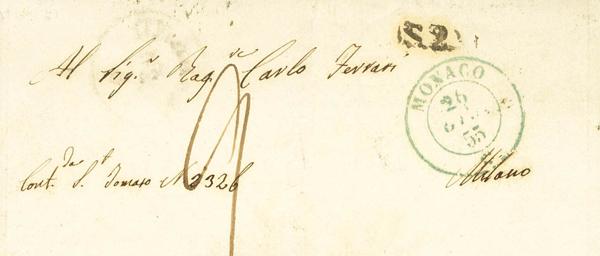 S.2.
Al Sig.r Rag.re Carlo Ferrari
MONACO
26
GIU.
53
Cont.da S.t Tomaso N 2326
Milano